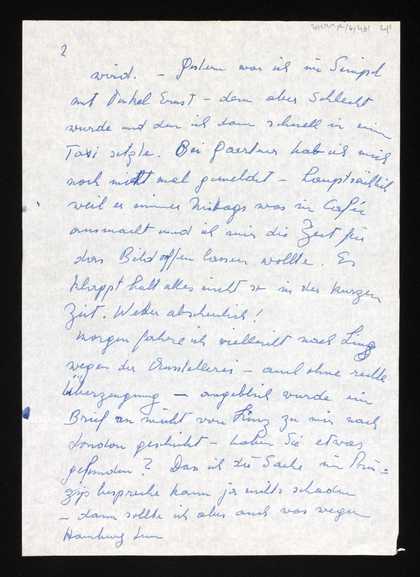 2
wird. – Gestern war ich im Simpl
mit Onkel Ernst – dem aber schlecht
wurde und den ich dann schnell in ein
Taxi setzte. Bei Gaertner hab ich mich
noch nicht mal gemeldet – hauptsächlich
weil er immer Mittags was im Café
ausmacht und ich mir die Zeit für
das Bild offen lassen wollte. Es
klappt halt alles nicht so in der kurzen
Zeit. Wetter abscheulich!
Morgen fahre ich vielleicht nach Linz
wegen der Ausstellerei – auch ohne rechte
Überzeugung – angeblich wurde ein
Brief an mich von Linz zu mir nach
London geschickt – haben Sie etwas
gefunden? Das ich die Sache im Prin=
zip bespreche kann ja nichts schaden
– dann sollte ich aber auch was wegen
Hamburg